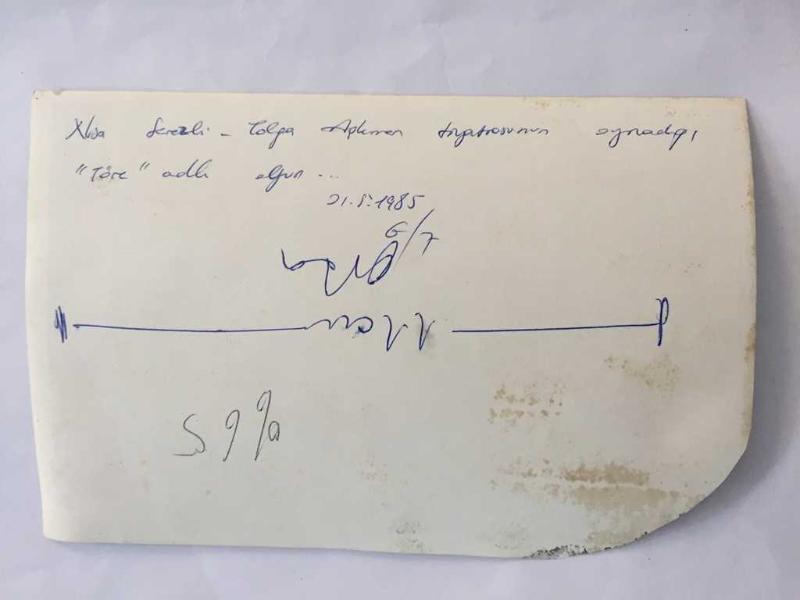 Nisa Serezli - Tolga Aşkıner tiyatrosunun oynadığı
"Töre" adlı oyun ...
21.5.1985
11 cm